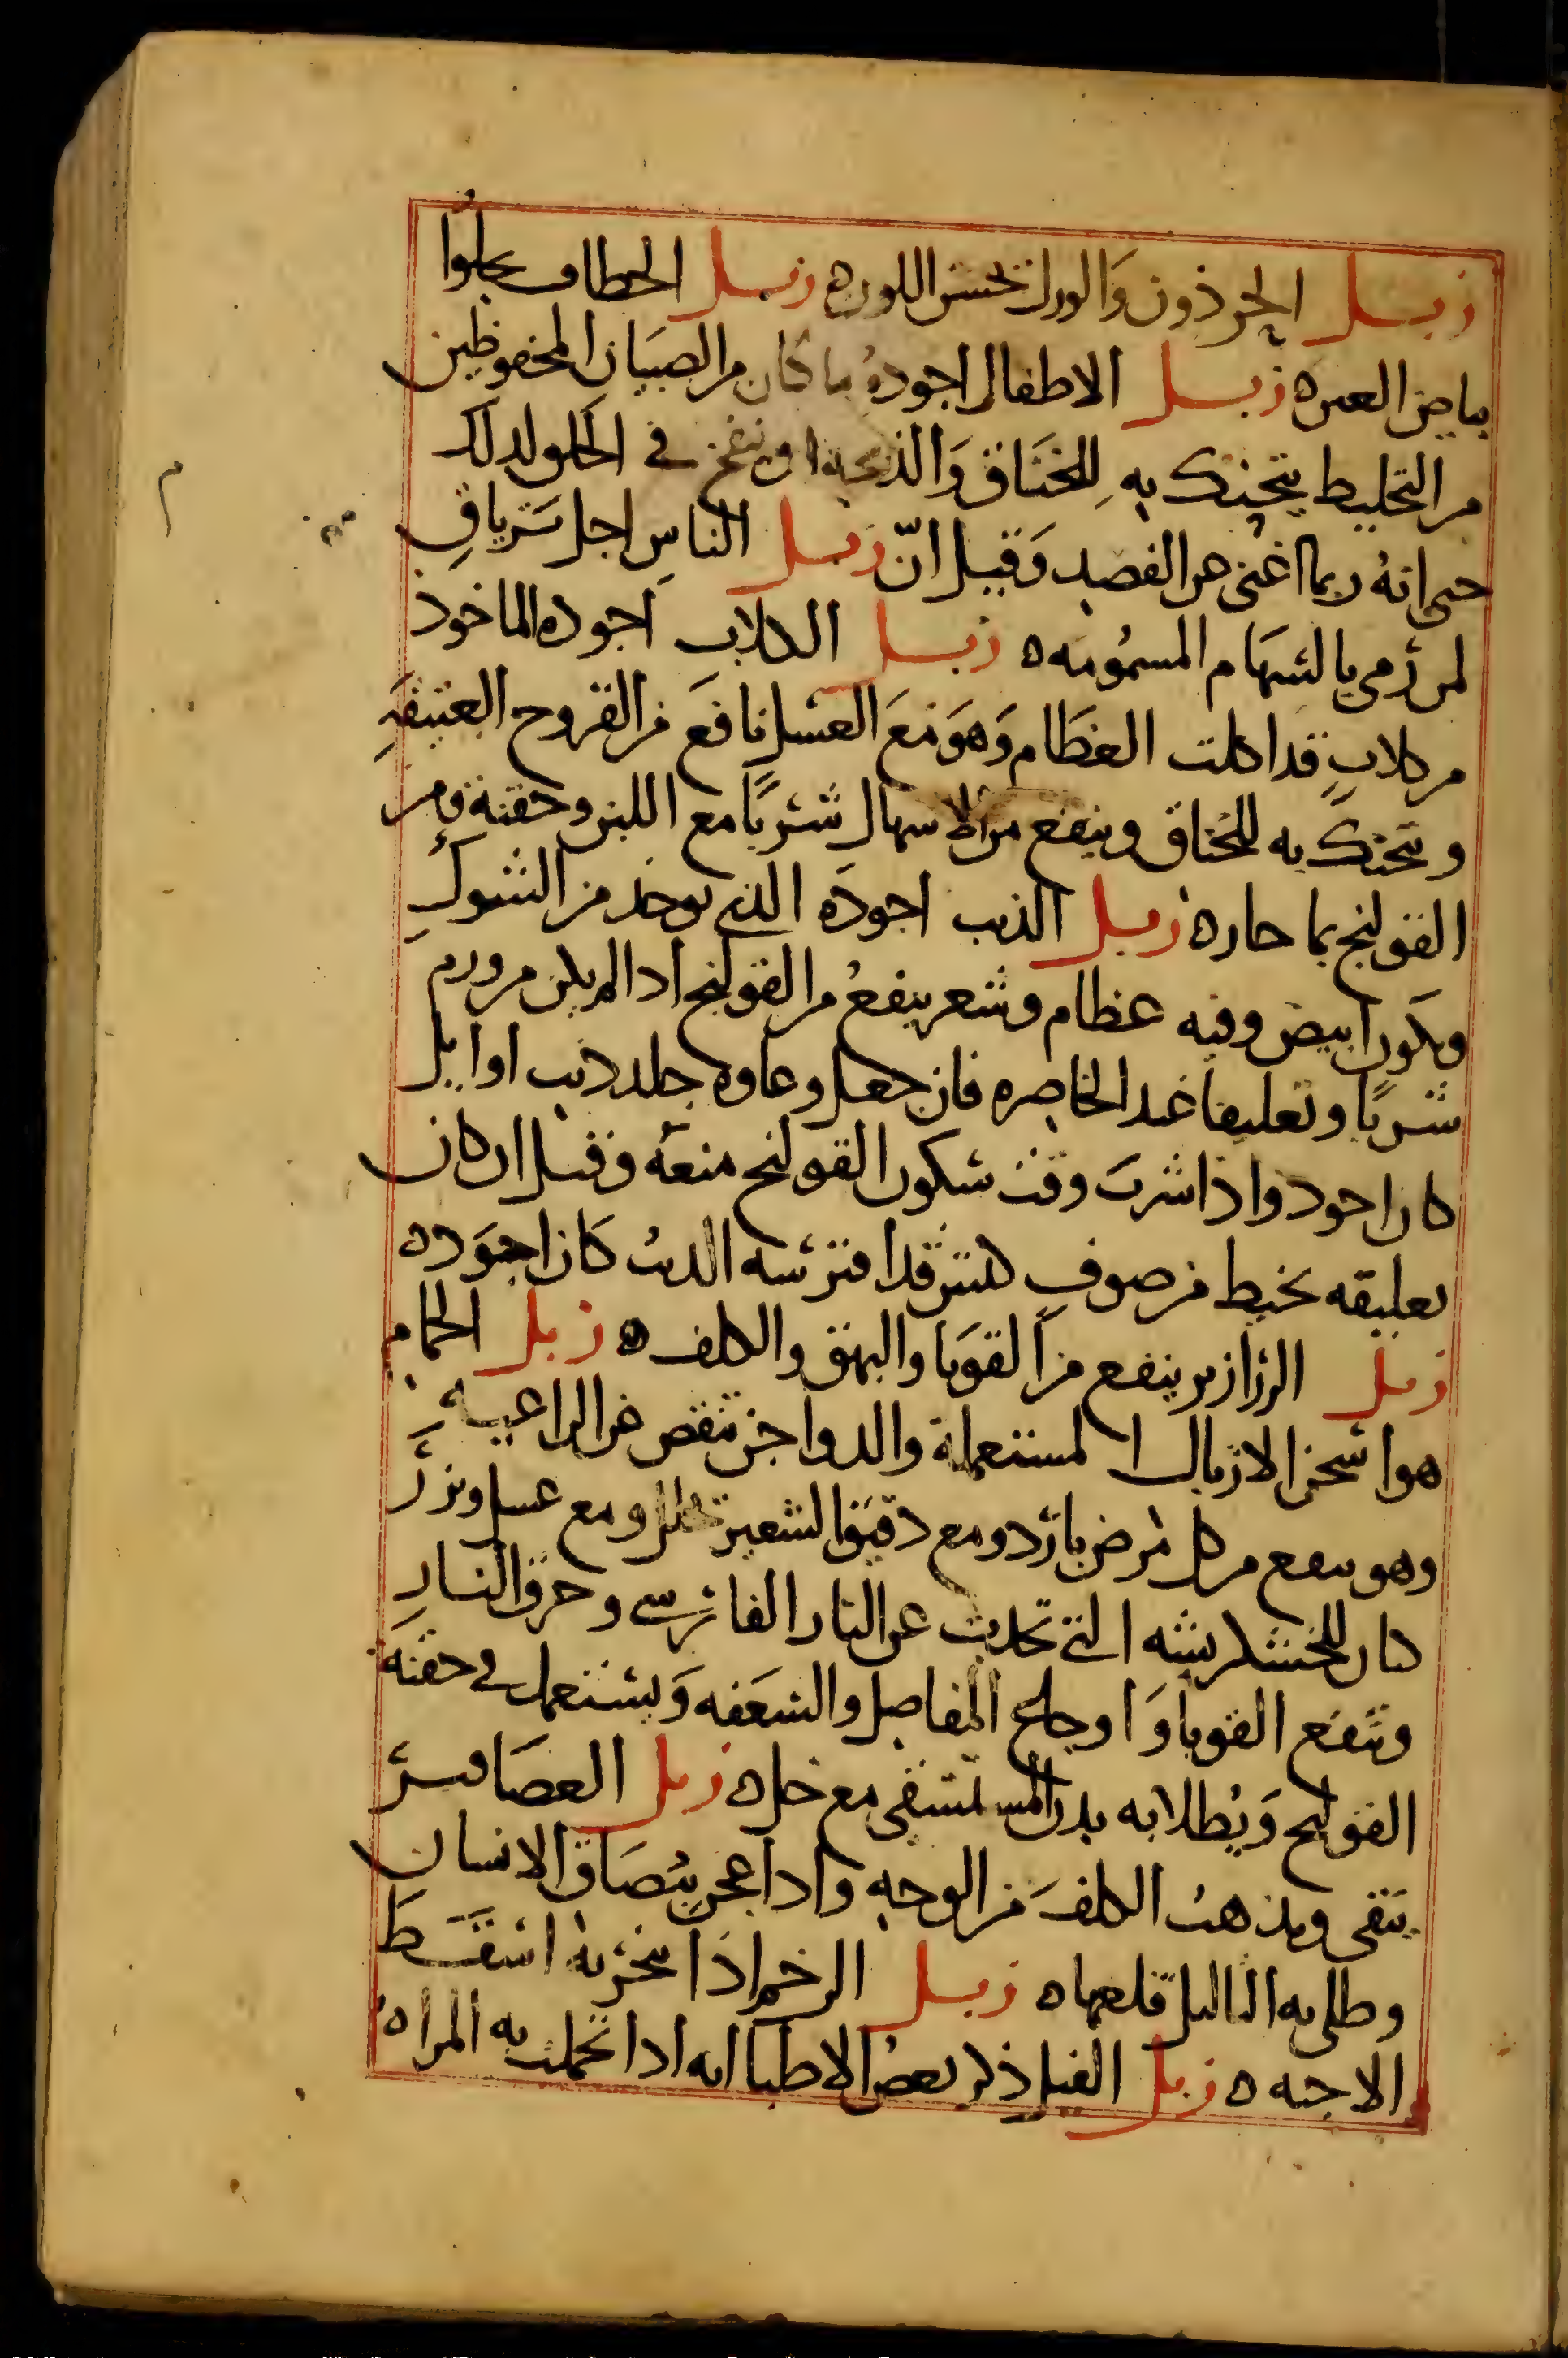 زبل الحرذون والورل تحسن اللون ه زبل الخطاف يجلوا
بياض العين ه زبل الاطفال اجوده ما كان من الصبيان المحفوظين
من التخليط يتحنك به للخناق والذبحة او ينفخ في الحلق لذلك
حتى انه ربما اغنى عن الفصد وقيل انّ زبل الناس اجل ترياق
لمن رمى بالسهام المسمومه ه زبل الكلاب اجوده الماخوذ
من كلاب قد اكلت العظام وهو مع العسل نافع من القروح العتيقة
ويتحنك به للخناق وينفع من الاسهال شربًا مع اللبن وحقنة ومن
القولنج بماء حار ه زبل الذيب اجوده الذي يوخذ من الشوك
ويكون ابيض وفيه عظام وشعر ينفع من القولنج اذا لم يكن من ورم
شربًا وتعليقا عند الخاصره فان جعل وعاوه جلد ذيب او ايل
كان اجود واذا شرب وقت سكون القولنج منعه وقيل ان كان
تعليقه بخيط من صوف كبش قد افترسه الديب كان اجوده
زبل الزرازير ينفع من القوبا والبهق والكلف ه زبل الحمام
هو اسخن الازبال المستعملة والدواجن تنقص عن الراعيه
وهو ينفع من كل مرض بارد ومع دقيق الشعير يحلل ومع عسل وبزر
كتان للخشكريشه التي تحدث عن النار الفارسي وحرق النار
وتنفع القوبا واوجاع المفاصل والسعفه ويستعمل في حقنة
القولنج ويطلا به بدن المستسقى مع خل ه زبل العصافير
ينقى ويذهب الكلف من الوجه واذا عجن ببصاق الانسان
وطلى به الثاليل قلعها ه زبل الرخم اذا بخر به اسقط
الاجنه ه زبل الفيل ذكر بعض الاطبا انه اذا تحملت به المراه